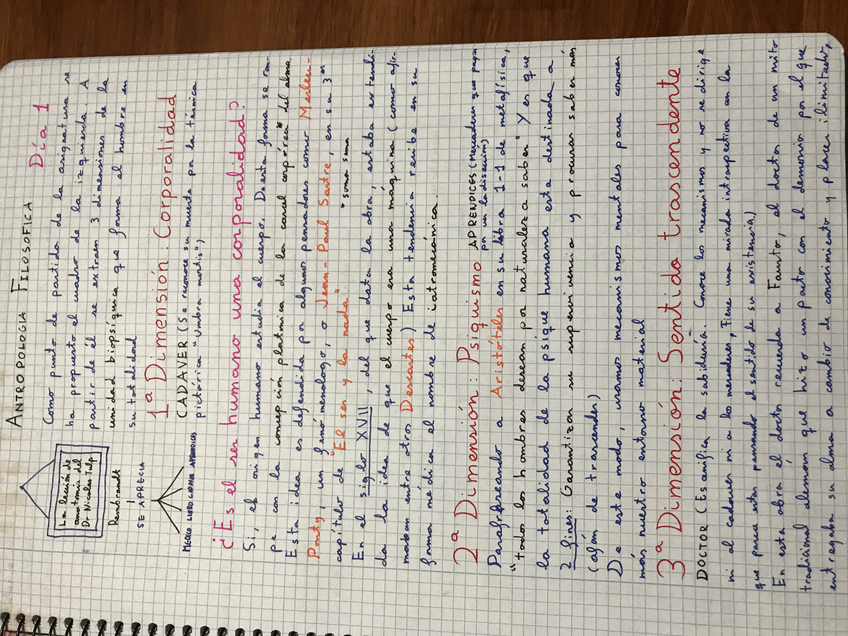 ANTROPOLOGÍA FILOSÓFICA Día 1
La lección de
anatomía del
Dr Nicolas Tulp
Rembrandt
SE APRECIA
MÉDICO LIBRO CADÁVER APRENDICES
Como punto de partida de la asignatura se
ha propuesto el cuadro de la izquierda. A
partir de él se extraen 3 dimensiones de la
unidad biopsíquica que forma el hombre en
su totalidad
1ª Dimensión: Corporalidad
CADÁVER (Se reconoce su muerte por la técnica
pictórica "umbra mortis")
¿Es el ser humano una corporalidad?
Si, el origen humano estudia el cuerpo. De esta forma se rom-
pe con la concepción platónica de la cárcel corpórea del alma.
Esta idea es defendida por algunos pensadores como Merleu-
Ponty, un fenómenologo, o Jean-Paul Sartre, en su 3er
capítulo de "El ser y la nada" "somos soma"
En el siglo XVII, del que data la obra, estaba extendi-
da la idea de que el cuerpo era una máquina (como afir-
maban entre otros Descartes) Esta tendencia recibe en su
forma médica el nombre de iatromecánica.
2ª Dimensión: Psiquismo APRENDICES (Mercaderes que pagan
por ver la disección)
Parafraseando a Aristóteles en su obra 1-1 de metafísica,
"todo los hombres desean por naturaleza saber" Y es que
la totalidad de la psique humana está destinada a
2 fines: Garantizar su supervivencia y procurar saber más
(afán de trascender)
De este modo, usamos mecanismos mentales para conocer
más nuestro entorno material
3ª Dimensión: Sentido trascendente
DOCTOR (Es anifica la sabiduría. Conoce los mecanismos y no se dirige
ni al cadáver ni a los mercaderes, tiene una mirada introspectiva en la
que parece estar pensando el sentido de su existencia)
En esta obra el doctor recuerda a Fausto, el doctor de un mito
tradicional alemám que hizo un pacto con el demonio por el que
entregaba su alma a cambio de conocimiento y placer ilimitados,